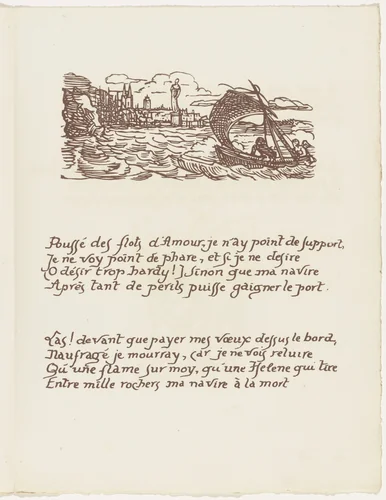 Poussé des flots d'Amour, je n'ay point de support,
Je ne voy point de phare, et si je ne desire
(O désir trop hardy!), Sinon que ma navire
Après tant de périls puisse gaigner le port.
Las! devant que payer mes vœux dessus le bord,
Naufragé je mourray, car je ne vois reluire
Qu'une flame sur moy, qu'une Helene qui tire
Entre mille rochers ma navire à la mort